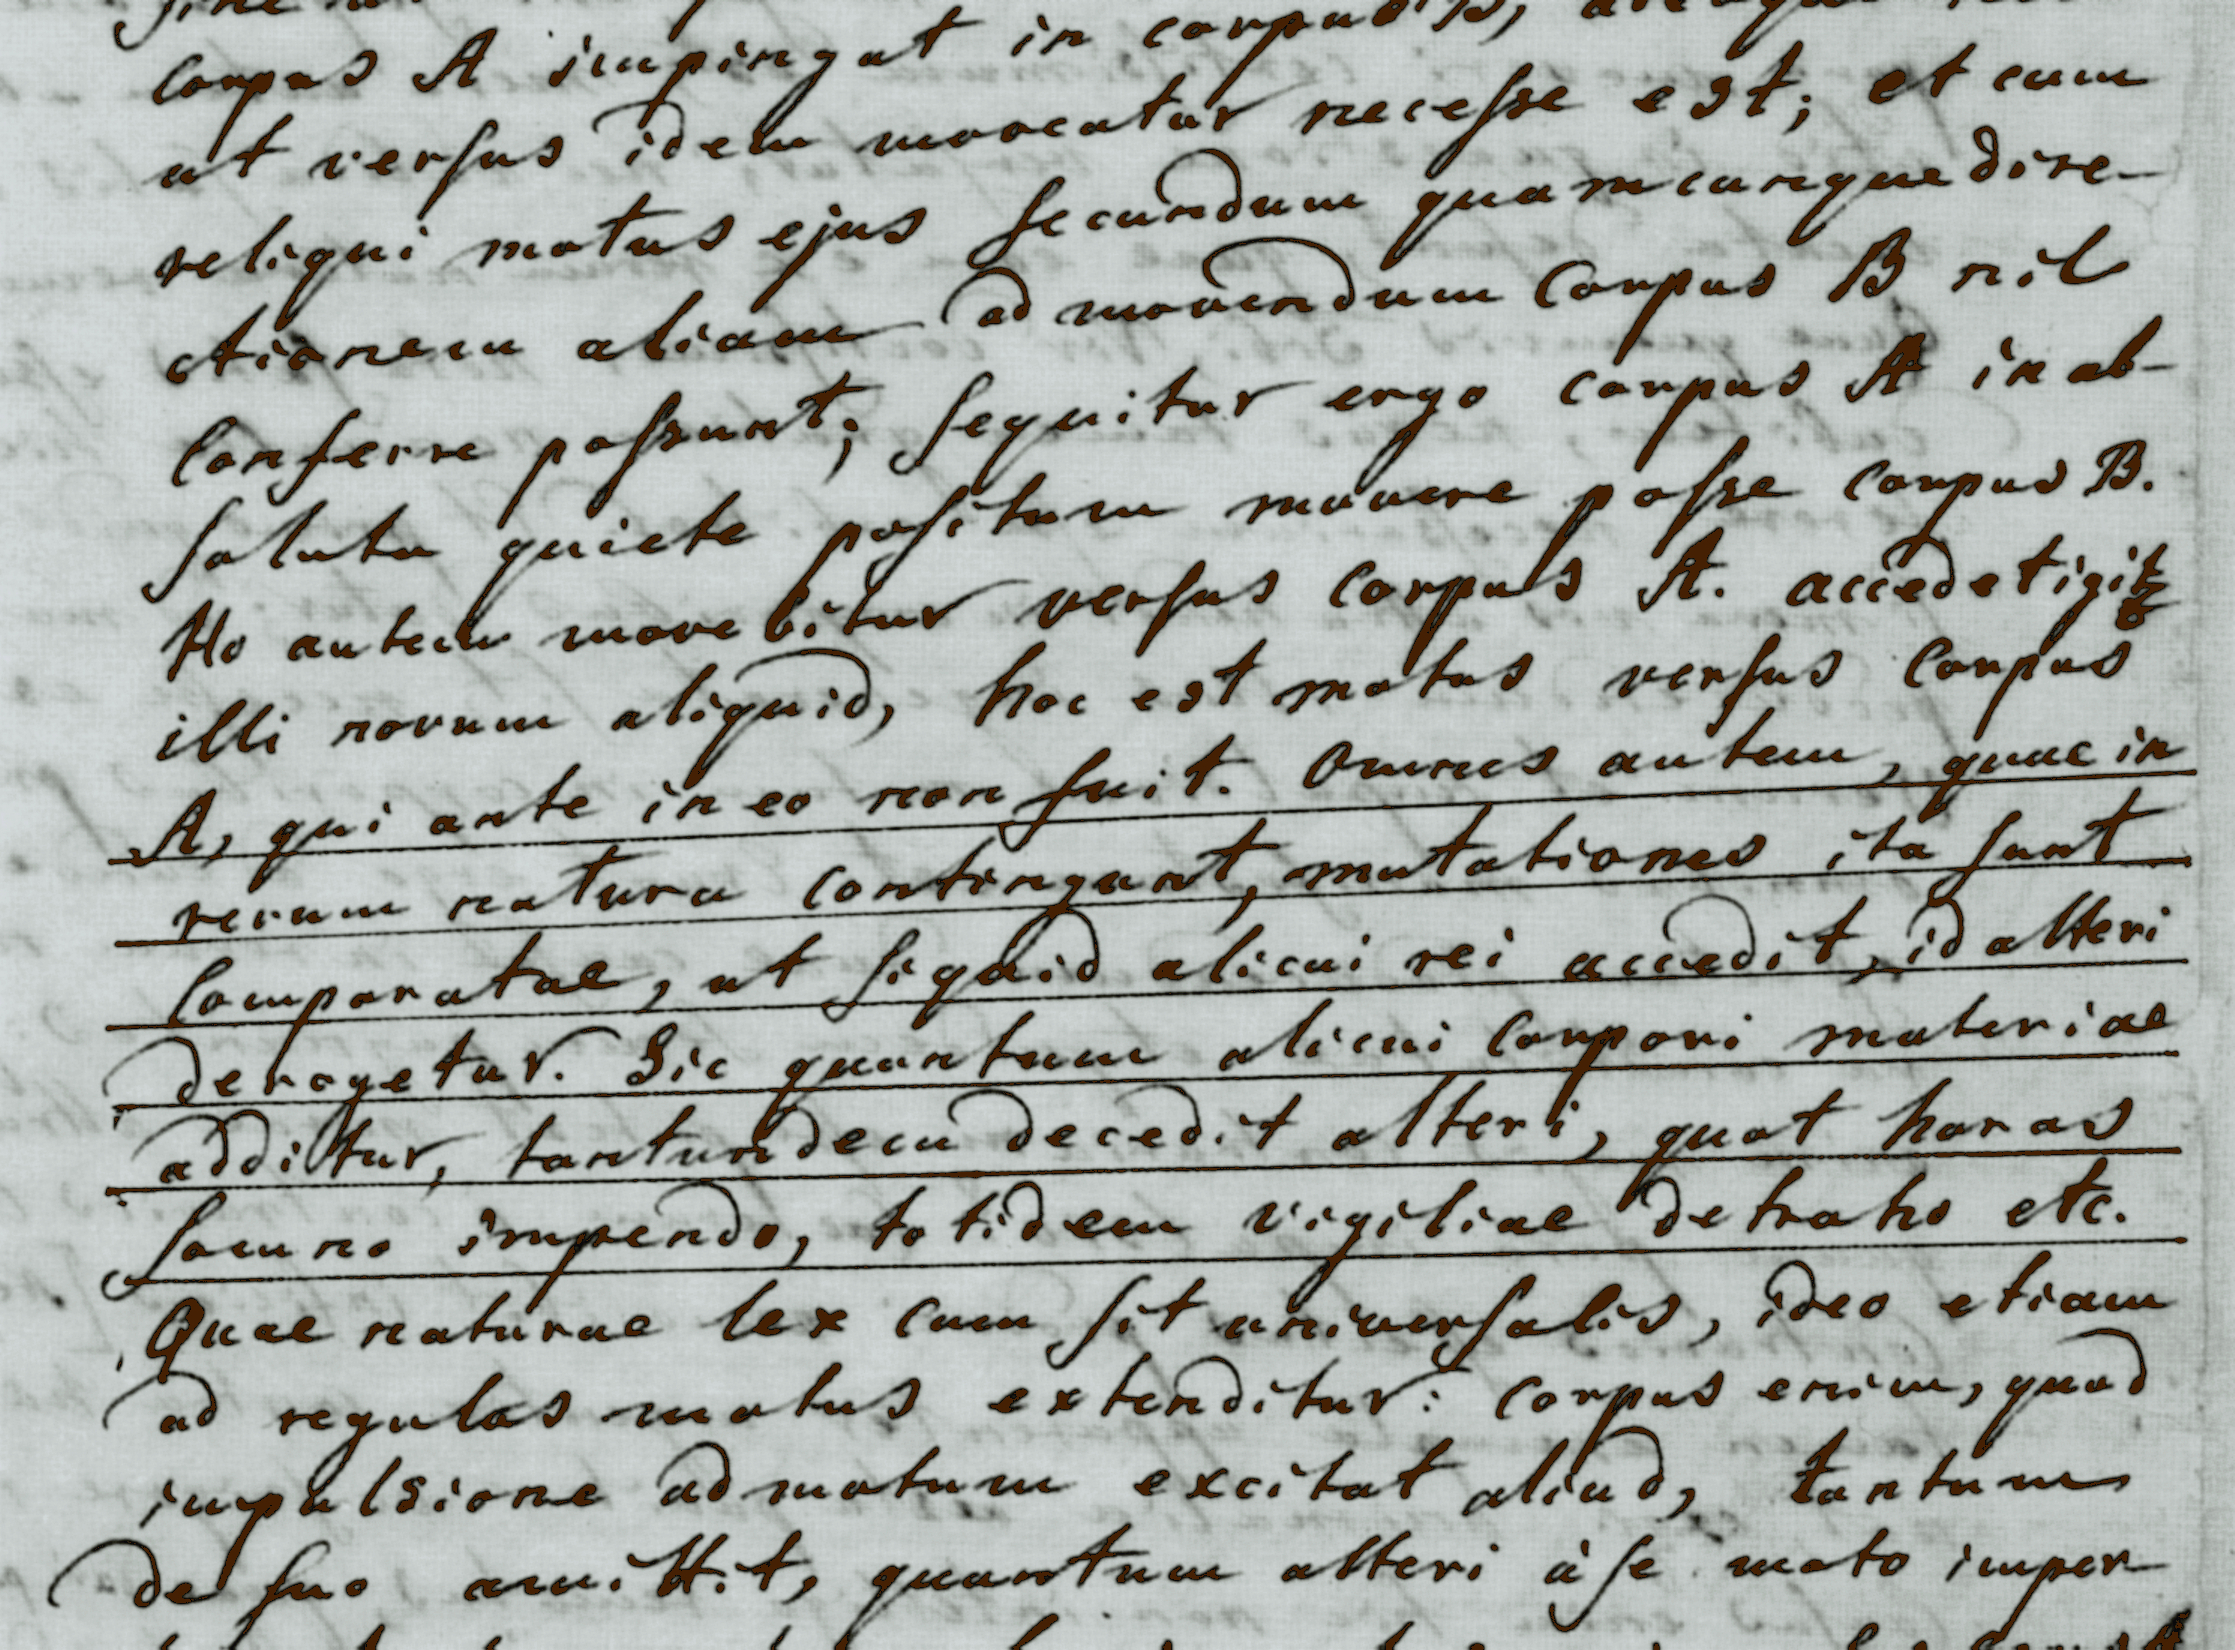 corpus A impingat in corpus B,
ut versus idem moveatur necesse est; et cum
reliqui motus ejus secundum quamcunque dire-
ctionem aliam ad movendum Corpus B nil
Conferre possunt; sequitur ergo corpus A in ab-
soluta quiete positum movere posse corpus B.
Ho autem movebitur versus corpus A. accedet igitur
illi novum aliquid, hoc est motus versus Corpus
A, qui ante in eo non fuit. Omnes autem, quae in
rerum natura contingunt, mutationes ita sunt
Comparatae, ut siquid alicui rei accedit, id alteri
derogetur. Sic quantum alicui Corpori materiae
additur, tantundem decedit alteri, quot horas
somno impendo, totidem vigiliae detraho etc.
Quae naturae lex cum sit universalis, ideo etiam
ad regulas motus extenditur: corpus enim, quod
impulsione ad motum excitat aliud, tantum
de suo amittit, quantum alteri à se moto imper-